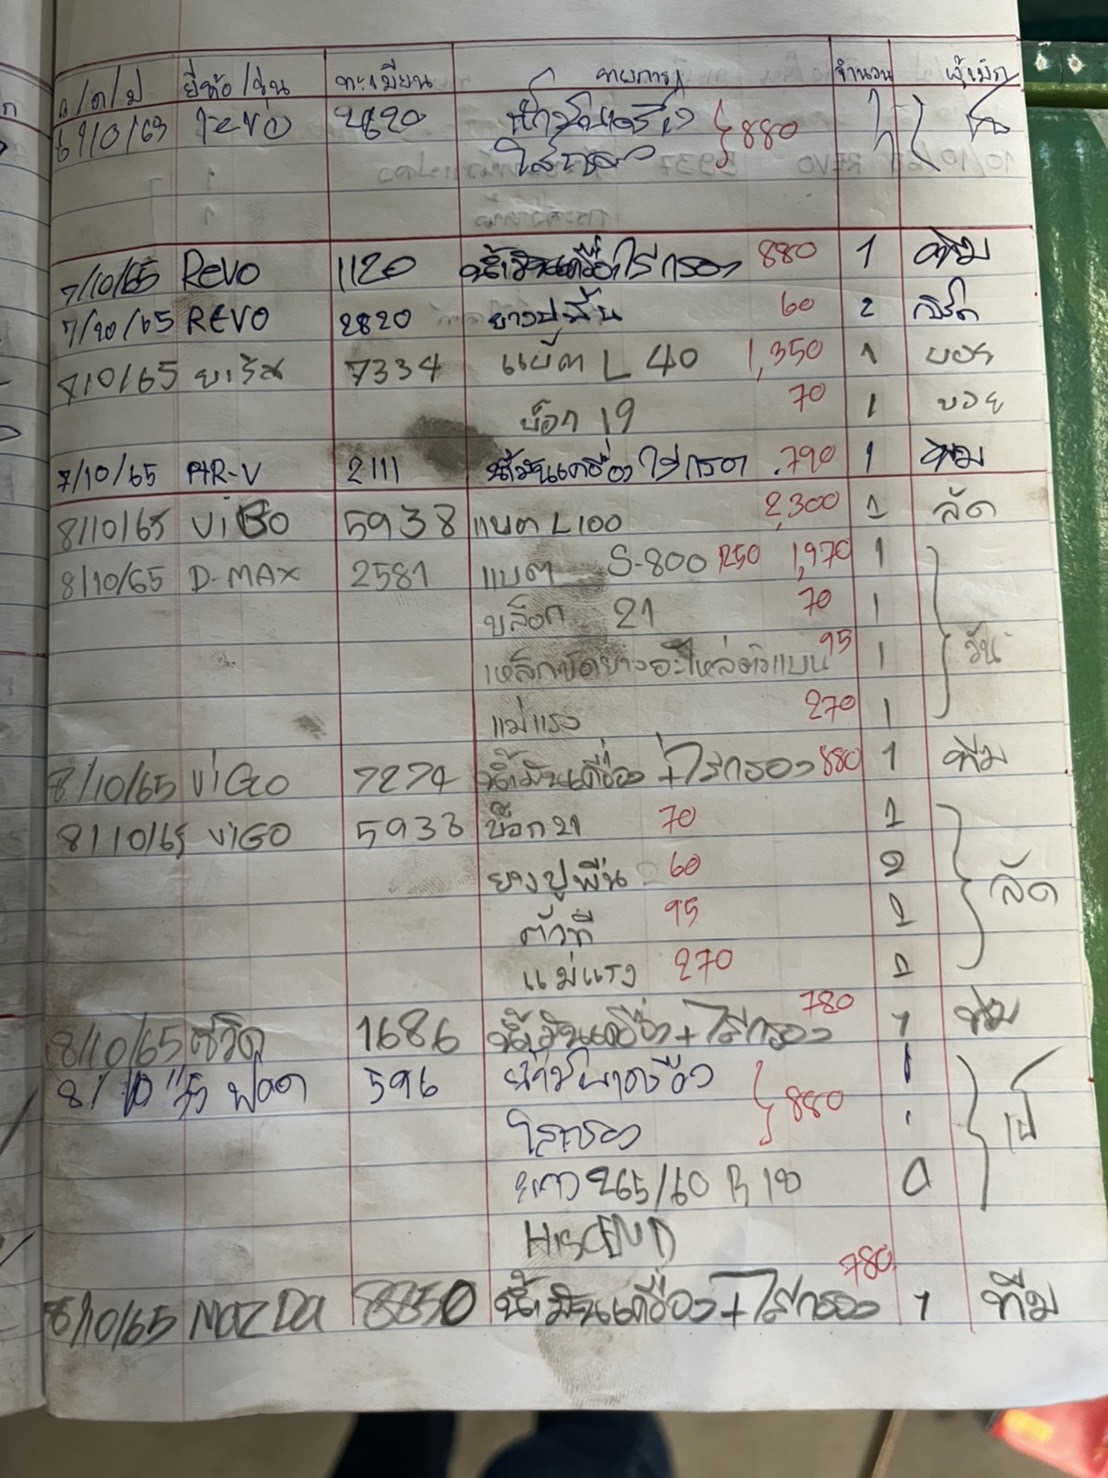 ว/ด/ป ยี่ห้อ/รุ่น ทะเบียน รายการ จำนวน ผู้เบิก
revo 2820 880
ไส้กรอง
7/10/65 REVO 1120 น้ำมันเครื่อง ไส้กรอง 880 1 ทีม
7/10/65 REVO 2820 ยางปูพื้น 60 2
7/10/65 ยาริส 7334 แบ็ต L 40 1,350 1 บอย
บ็อก 19 70 1 บอย
7/10/65 HR-V 2111 น้ำมันเครื่อง ไส้กรอง 790 1 ทีม
8/10/65 ViGO 5938 แบต L100 2,300 1 ลัด
8/10/65 D-MAX 2581 แบต S-800 R50 1,970 1
บล็อก 21 70 1
เหล็กขันยางอะไหล่ตัวแบน 95 1 วัน
แม่แรง 270 1
8/10/65 ViGO 7274 น้ำมันเครื่อง + ไส้กรอง 880 1 ทีม
8/10/65 ViGO 5938 บ็อก 21 70 1
ยางปูพื้น 60 2 ลัด
ตัวที 95 1
แม่แรง 270 1
8/10/65 ซีวิค 1686 น้ำมันเครื่อง + ไส้กรอง 780 1 ทีม
8/10 ฟอด 596 880 1
ไส้กรอง
ยาง 265/60 R 18
8/10/65 MAZDA 8850 น้ำมันเครื่อง + ไส้กรอง 780 1 ทีม